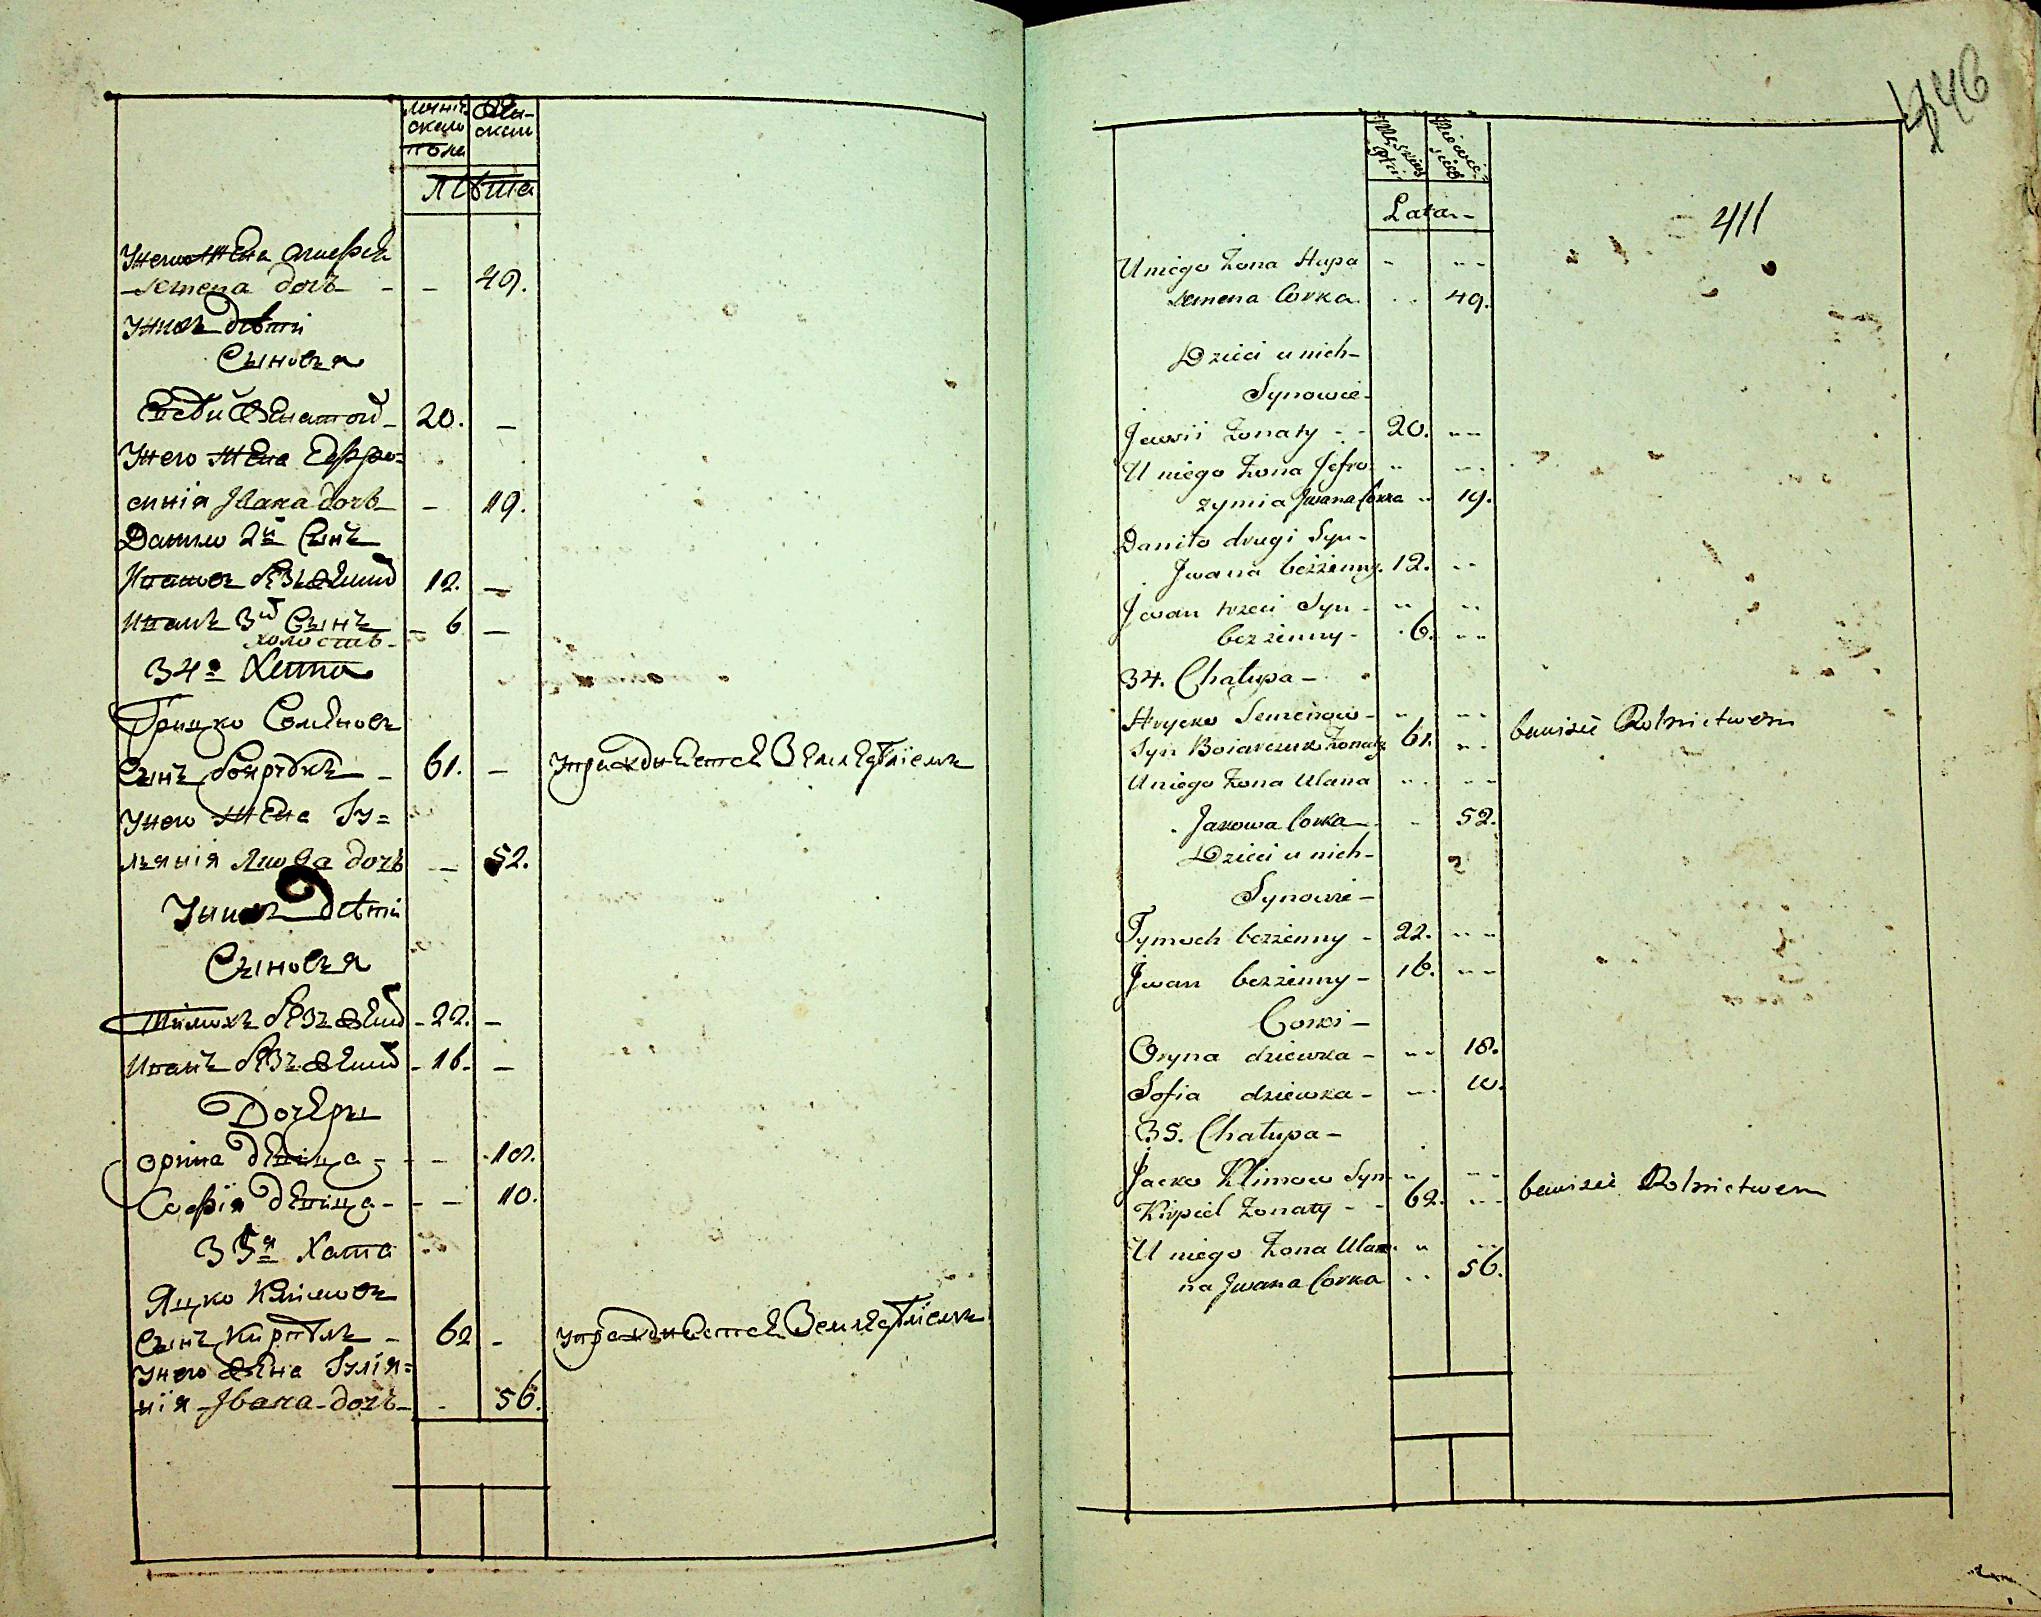 мужеска пола
женска
Лѣта
У него жена
Семена дочь - - 49.
У них дѣти
Сыновья
женатой - 20. -
У него жена Ефро=
синія Ивана дочь - - 19.
Данило 2й Сынъ
безженной 12. -
Иванъ 3й Сынъ - 6 -
холостъ -
34я Хата
Грицко Семеновъ
Сынъ - 61. - упражняется Земледѣліемъ
У него жена Іу=
льянія Якова дочь - 52.
У нихъ дѣти
Сыновья
Тимохъ безженной - 22. -
Иванъ безженной - 16. -
Дочери
Орина дѣвица - - - 18.
Софія дѣвица - - - 10.
35я Хата
Яцко Климовъ
Сынъ - 62 - упражняется Земледѣліемъ
У него жена Іулія=
нія Ивана дочь - - 56.
446
Lata -
411
U niego Żona Hapa
Semena Corka 49.
Dzieci u nich -
Synowie -
Jewsii Żonaty - - 20.
U niego Żona Jefro
zymia Jwana Corka 19.
Daniło drugi Syn -
Jwana bezżenny. 12.
Jwan trzeci Syn -
bezżenny - 6.
34. Chałupa -
Hrycko Semenow -
Syn Boiarczuk Żonaty 61. bawisie Rolnictwem
U niego Żona Ulana
Jakowa Corka - 52.
Dzieci u nich -
Synowie -
Tymoch bezżenny - 22.
Jwan bezżenny - 16.
Corki -
Oryna dziewka - 18.
Sofia dziewka - 10.
35. Chałupa -
Jacko Klimow Syn
Kirpiel Żonaty - - 62. bawisie Rolnictwem
U niego Żona Ula
na Jwana Corka 56.